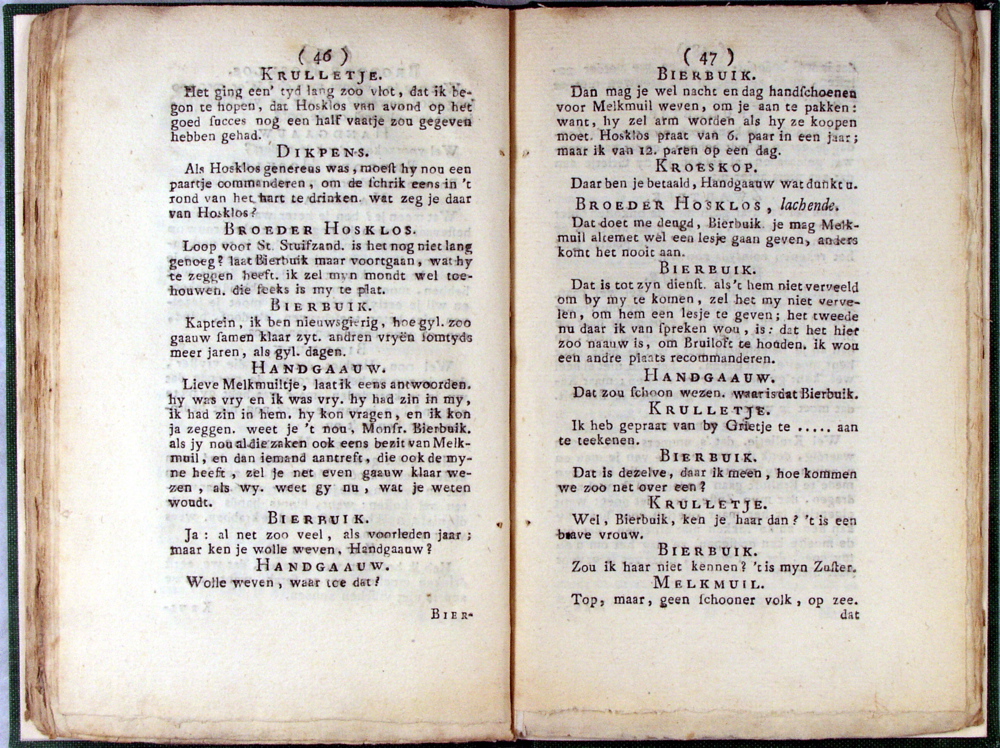 ( 46 )
KRULLETJE.
Het ging een' tyd lang zoo vlot, dat ik be-
gon te hopen, dat Hosklos van avond op het
goed succes nog een half vaatje zou gegeven
hebben gehad.
DIKPENS.
Als Hosklos genereus was, moeſt hy nou een
paartje commanderen, om de ſchrik eens in 't
rond van het hart te drinken. wat zeg je daar
van Hosklos?
BROEDER HOSKLOS.
Loop voor St. Stuifzand. is het nog niet lang
genoeg? laat Bierbuik maar voortgaan, wat hy
te zeggen heeft. ik zel myn mondt wel toe-
houwen. die ſeeks is my te plat.
BIERBUIK.
Kaptein, ik ben nieuwsgierig, hoe gyl. zoo
gaauw ſamen klaar zyt. andren vryën ſomtyds
meer jaren, als gyl. dagen.
HANDGAAUW.
Lieve Melkmuiltje, laat ik eens antwoorden.
hy was vry en ik was vry. hy had zin in my,
ik had zin in hem. hy kon vragen, en ik kon
ja zeggen. weet je 't nou, Monſr. Bierbuik.
als jy nou al die zaken ook eens bezit van Melk-
muil, en dan iemand aantreft, die ook de my-
ne heeft, zel je net even gaauw klaar we-
zen, als wy. weet gy nu, wat je weten
woudt.
BIERBUIK.
Ja: al net zoo veel, als voorleden jaar;
maar ken je wolle weven, Handgaauw?
HANDGAAUW.
Wolle weven, waar toe dat?
BIER-
( 47 )
BIERBUIK.
Dan mag je wel nacht en dag handſchoenen
voor Melkmuil weven, om je aan te pakken:
want, hy zel arm worden als hy ze koopen
moet. Hosklos praat van 6. paar in een jaar;
maar ik van 12. paren op een dag.
KROESKOP.
Daar ben je betaald, Handgaauw wat dunkt u.
BROEDER HOSKLOS, lachende.
Dat doet me deugd, Bierbuik. je mag Melk-
muil altemet wel een lesje gaan geven, anders
komt het nooit aan.
BIERBUIK.
Dat is tot zyn dienſt. als't hem niet verveeld
om by my te komen, zel het my niet verve-
len, om hem een lesje te geven; het tweede
nu daar ik van ſpreken wou, is: dat het hier
zoo naauw is, om Bruiloft te houden. ik wou
een andre plaats recommanderen.
HANDGAAUW.
Dat zou ſchoon wezen. waar is dat Bierbuik.
KRULLETJE.
Ik heb gepraat van by Grietje te ..... aan
te teekenen.
BIERBUIK.
Dat is dezelve, daar ik meen, hoe kommen
we zoo net over een?
KRULLETJE.
Wel, Bierbuik, ken je haar dan? 't is een
brave vrouw.
BIERBUIK.
Zou ik haar niet kennen? 't is myn Zuſter.
MELKMUIL.
Top, maar, geen ſchooner volk, op zee.
dat